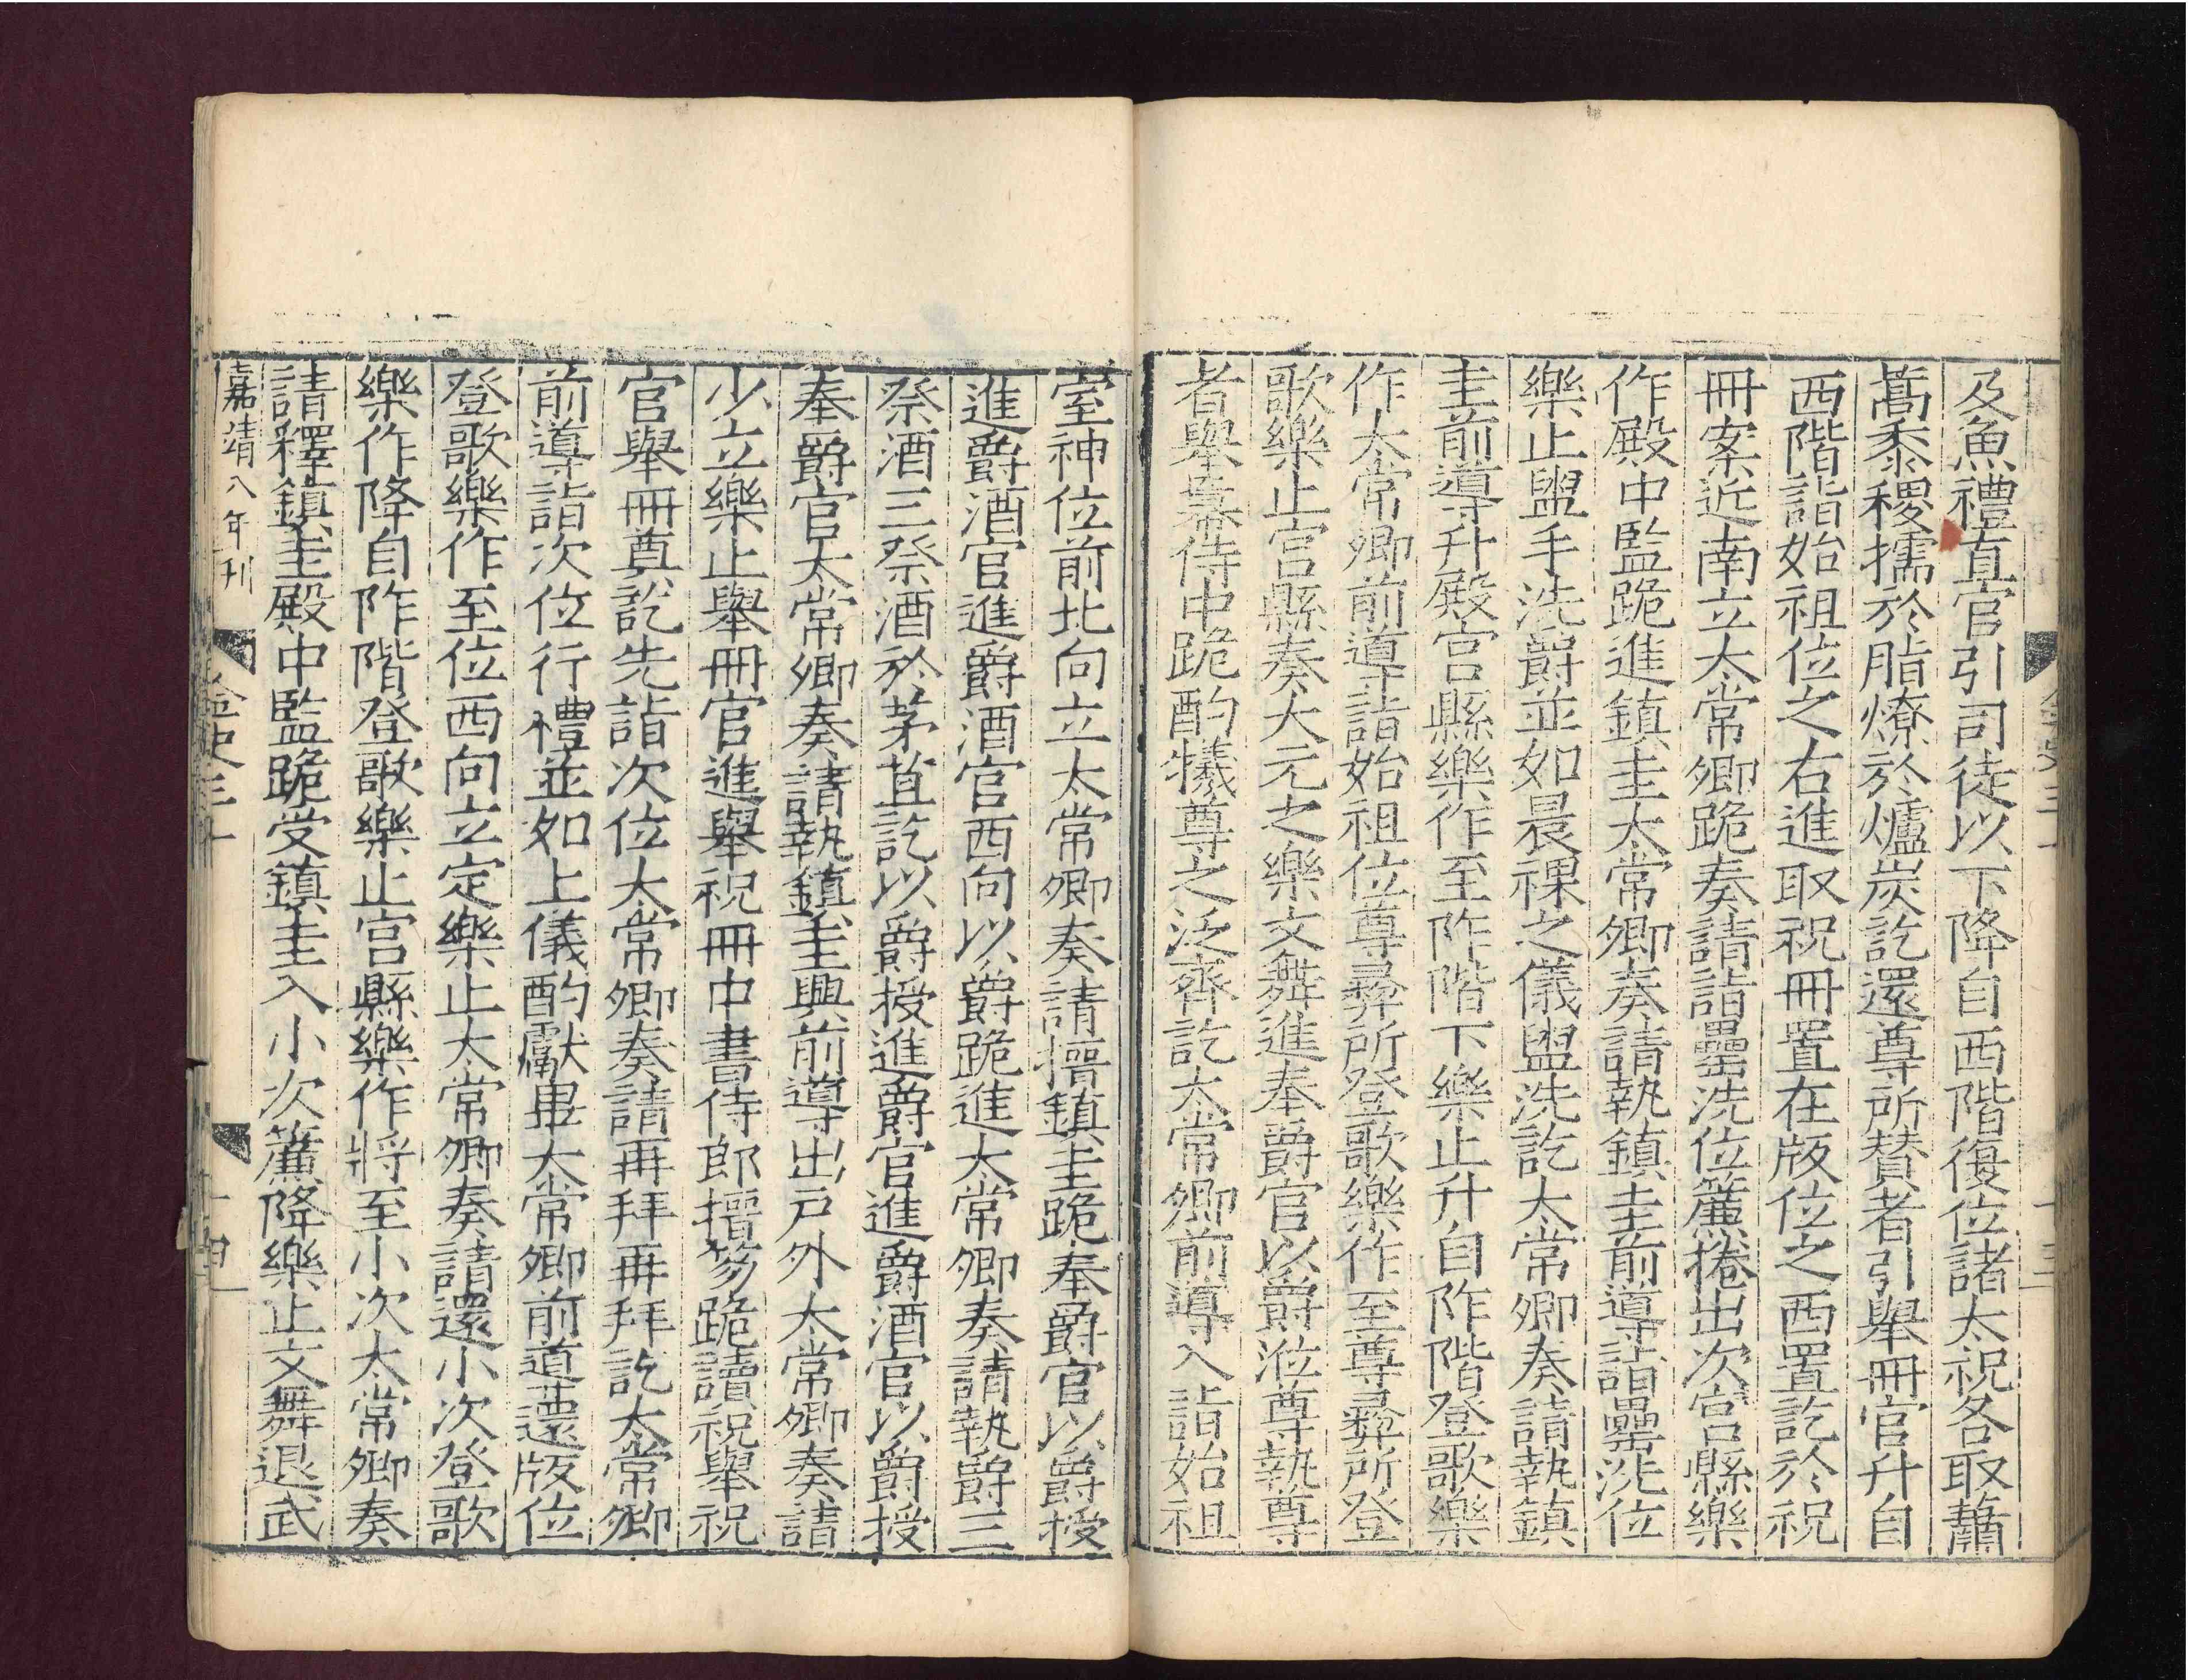 及魚禮直官引司徒以下降自西階復位諸太祝各取蕭
蒿黍稷擩於脂燎於爐炭訖還尊所賛者引舉冊官升自
西階詣始祖位之右進取祝冊置在版位之西置訖於祝
冊案近南立太常卿跪奏請詣罍洗位簾捲出次宮縣樂
作殿中監跪進鎮圭太常卿奏請執鎮圭前導詣罍洗位
樂止盥手洗爵並如晨祼之儀盥洗訖太常卿奏請執鎮
圭前導升殿宮縣樂作至阼階下樂止升自阼階登歌樂
作太常卿前導詣始祖位尊彞所登歌樂作至尊彞所登
歌樂止宮縣奏大元之樂文舞進奉爵官以爵涖尊執尊
者舉羃侍中跪酌犧尊之泛齊訖太常卿前導入詣始祖
室神位前北向立太常卿奏請搢鎮圭跪奉爵官以爵授
進爵酒官進爵酒官西向以爵跪進太常卿奏請執爵三
祭酒三祭酒於茅苴訖以爵授進爵官進爵酒官以爵授
奉爵官太常卿奏請執鎮圭興前導出戶外太常卿奏請
少立樂止舉冊官進舉祝冊中書侍郎搢笏跪讀祝舉祝
官舉冊奠訖先詣次位太常卿奏請再拜再拜訖太常卿
前導詣次位行禮並如上儀酌獻畢太常卿前道還版位
登歌樂作至位西向立定樂止太常卿奏請還小次登歌
樂作降自阼階登歌樂止宮縣樂作將至小次太常卿奏
請釋鎮圭殿中監跪受鎮圭入小次簾降樂止文舞退武
嘉靖八年刊
金史三十
十四